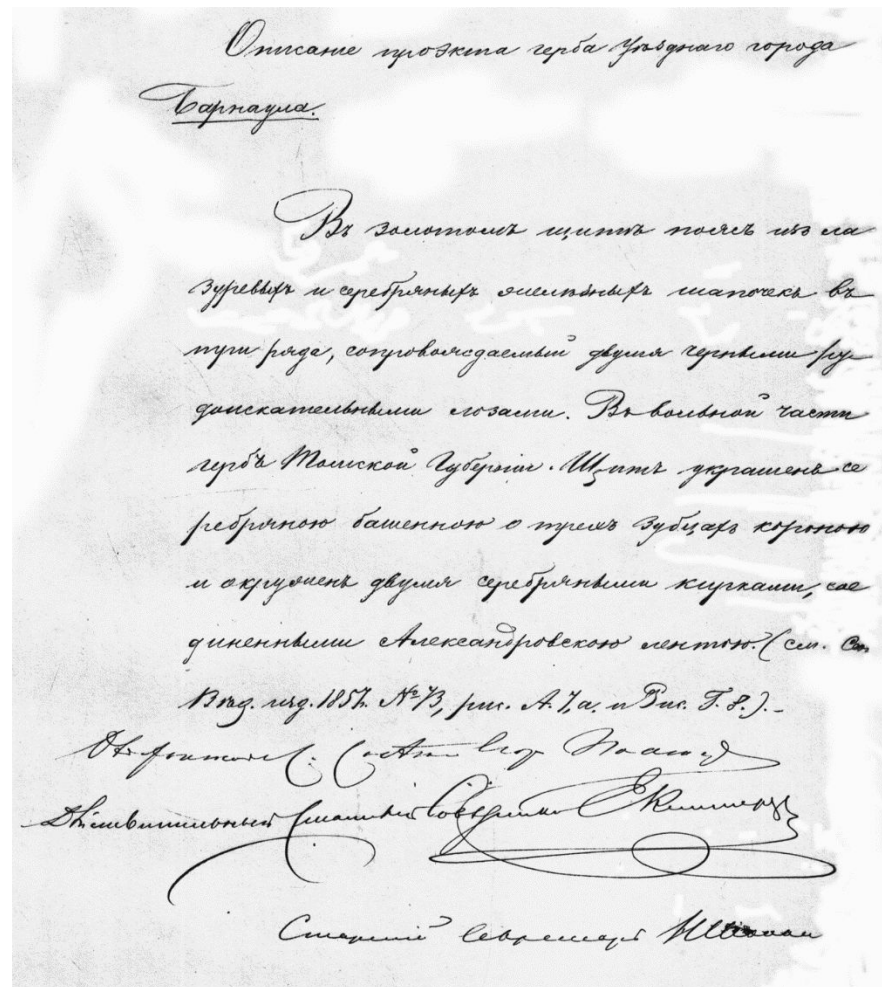 Описаніе проэкта герба Уѣзднаго города
Барнаула.
Въ золотомъ щитѣ поясъ изъ ла
зуревыхъ и серебряныхъ желѣзныхъ шапочекъ въ
три ряда, сопровождаемый двумя черными ру
доискательными лозами. Въ вольной части
гербъ Томской Губерніи. Щитъ украшенъ се
ребряною башенною о трехъ зубцахъ короною
и окруженъ двумя серебряными кирками, сое
диненными Александровскою лентою. (см. 
Вѣд. изд. 1857. № 73, рис. А. 7, а. и Рис. Г. 8.).-
Дѣйствительный Статскій Совѣтникъ
Старшій Секретарь